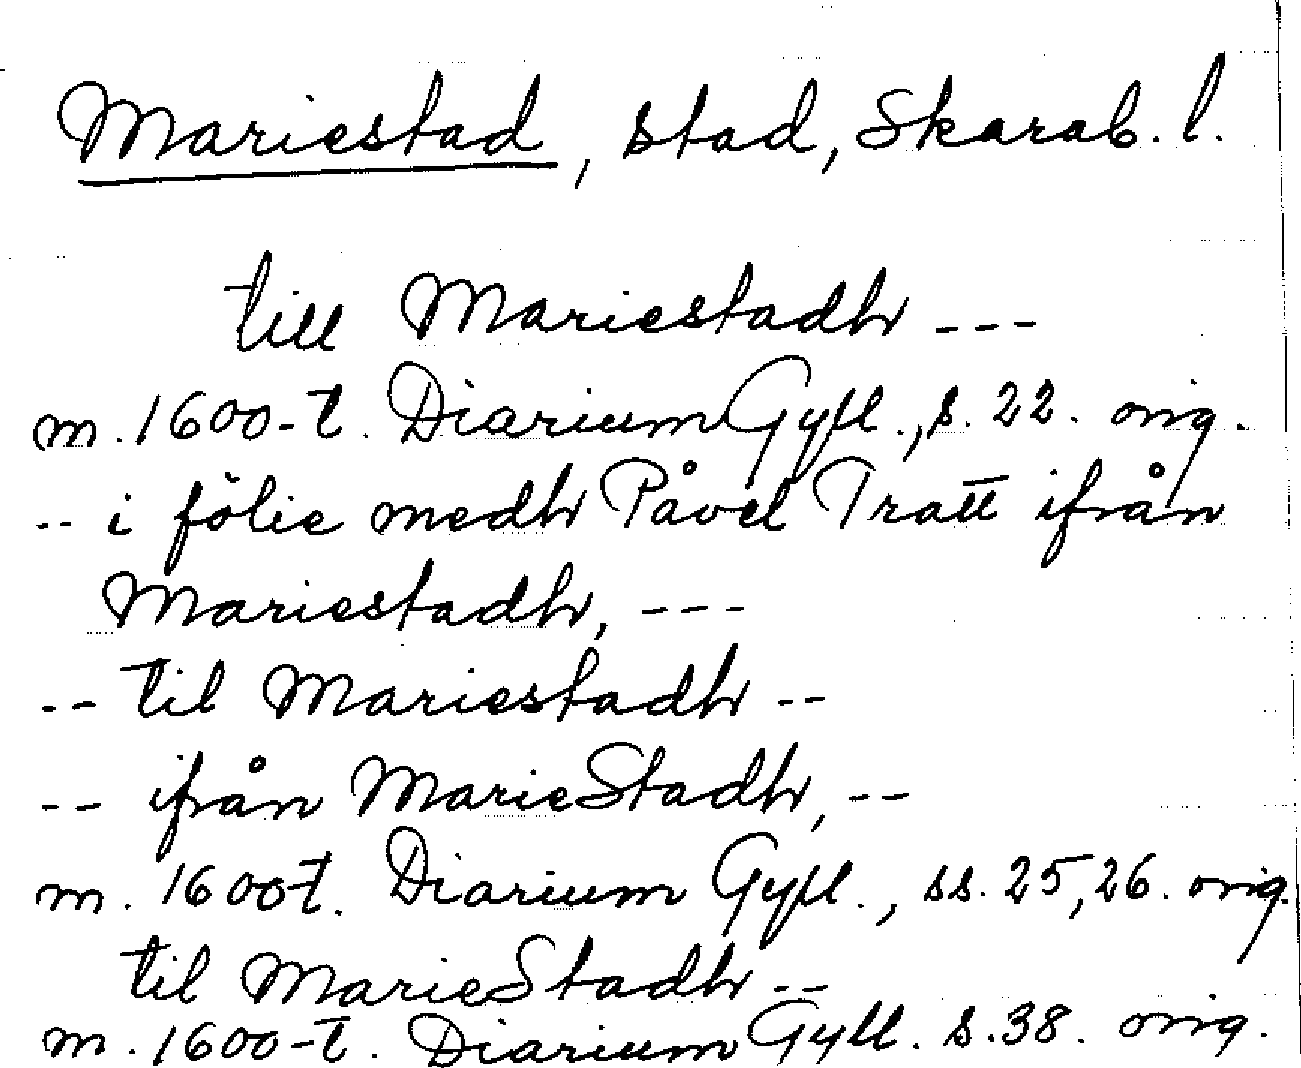 Mariestad, stad, Skarab. l.
till Mariestadh ---
m. 1600-t. Diarium Gyll., s. 22. orig.
-- i fölie medh Påvel Tratt ifrån
Mariestadh, ---
-- til Mariestadh --
-- ifrån MarieStadh, --
m. 1600t. Diarium Gyll., ss. 25, 26. orig.
til MarieStadh --
m. 1600-t. Diarium Gyll. s. 38. orig.